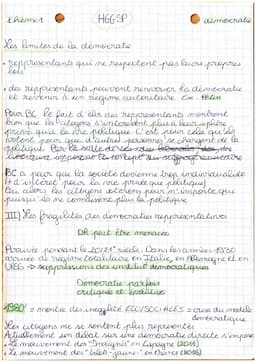 thème 1 HGGSP démocratie
Les limites de la démocratie
• représentants qui ne respectent pas leurs propres
lois
• des représentants peuvent renverser la démocratie
et revenir à un régime autoritaire
Pour BC le fait d'élir des représentants montrent
bien que les citoyens s'intéressent plus à leur sphère
privée qu'à la vie politique. C'est pour cela qu'ils
votent pour que d'autres personnes se chargent de la
politique.
BC a peur que la société devienne trop individualiste
(+ d'intérêt pour la vie privée que politique)
car alors les citoyens voteront pour n'importe qui
puisqu'ils ne connaissent plus la politique
III) Les fragilités des démocraties représentatives
DR peut être menacée
Arrivée pendant le 20e 21e siècle. Dans les années 1930
arrivée de régime totalitaire en Italie, en Allemagne et en
URSS → suppressions des institut° démocratiques
Démocratie parfois
critiquée et fragilisée
1980 = montée des inégalités ECO/SOCIALES = crise du modèle
démocratique
Les citoyens ne se sentent plus représentés
Actuellement un débat sur une démocratie directe s'impose
- Le mouvement des "Indignés" en Espagne (2011)
- Le mouvement des "Gilets-jaunes" en France (2018)